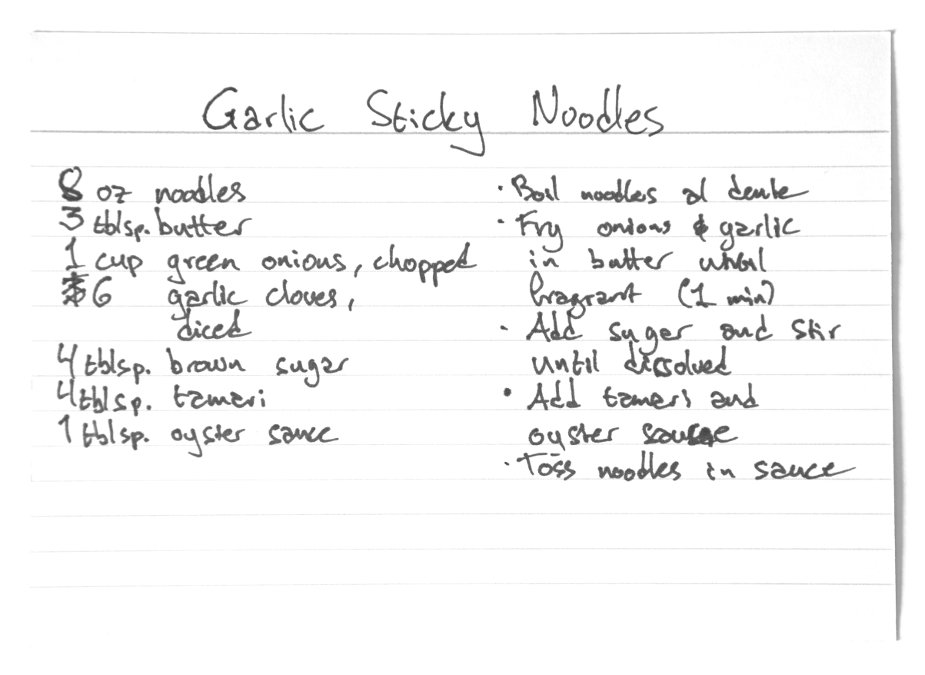 Garlic Sticky Noodles
8 oz noodles
3 tblsp. butter
1 cup green onions, chopped
6 garlic cloves,
diced
4 tblsp. brown sugar
4 tblsp. tamari
1 tblsp. oyster sauce
· Boil noodles al dente
· Fry onions & garlic
in butter until
fragrant (1 min)
· Add sugar and stir
until dissolved
· Add tamari and
oyster sause
· Toss noodles in sauce